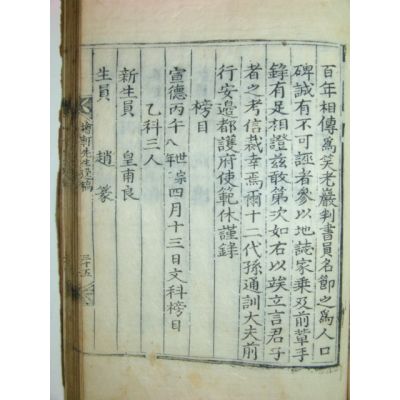 百年相傳爲笑老巖判書員名節之爲人口
碑誠有不可誣者參以地誌家乘及前輩手
錄有足相證玆敢第次如右以竢立言君子
者之考信裁幸焉爾十二代孫通訓大夫前
行安邊都護府使範休謹錄
榜目
宣德丙午八年世宗四月十三日文科榜目
乙科三人
新生員 皇甫良
生員 趙篆
先生逸稿
三十五